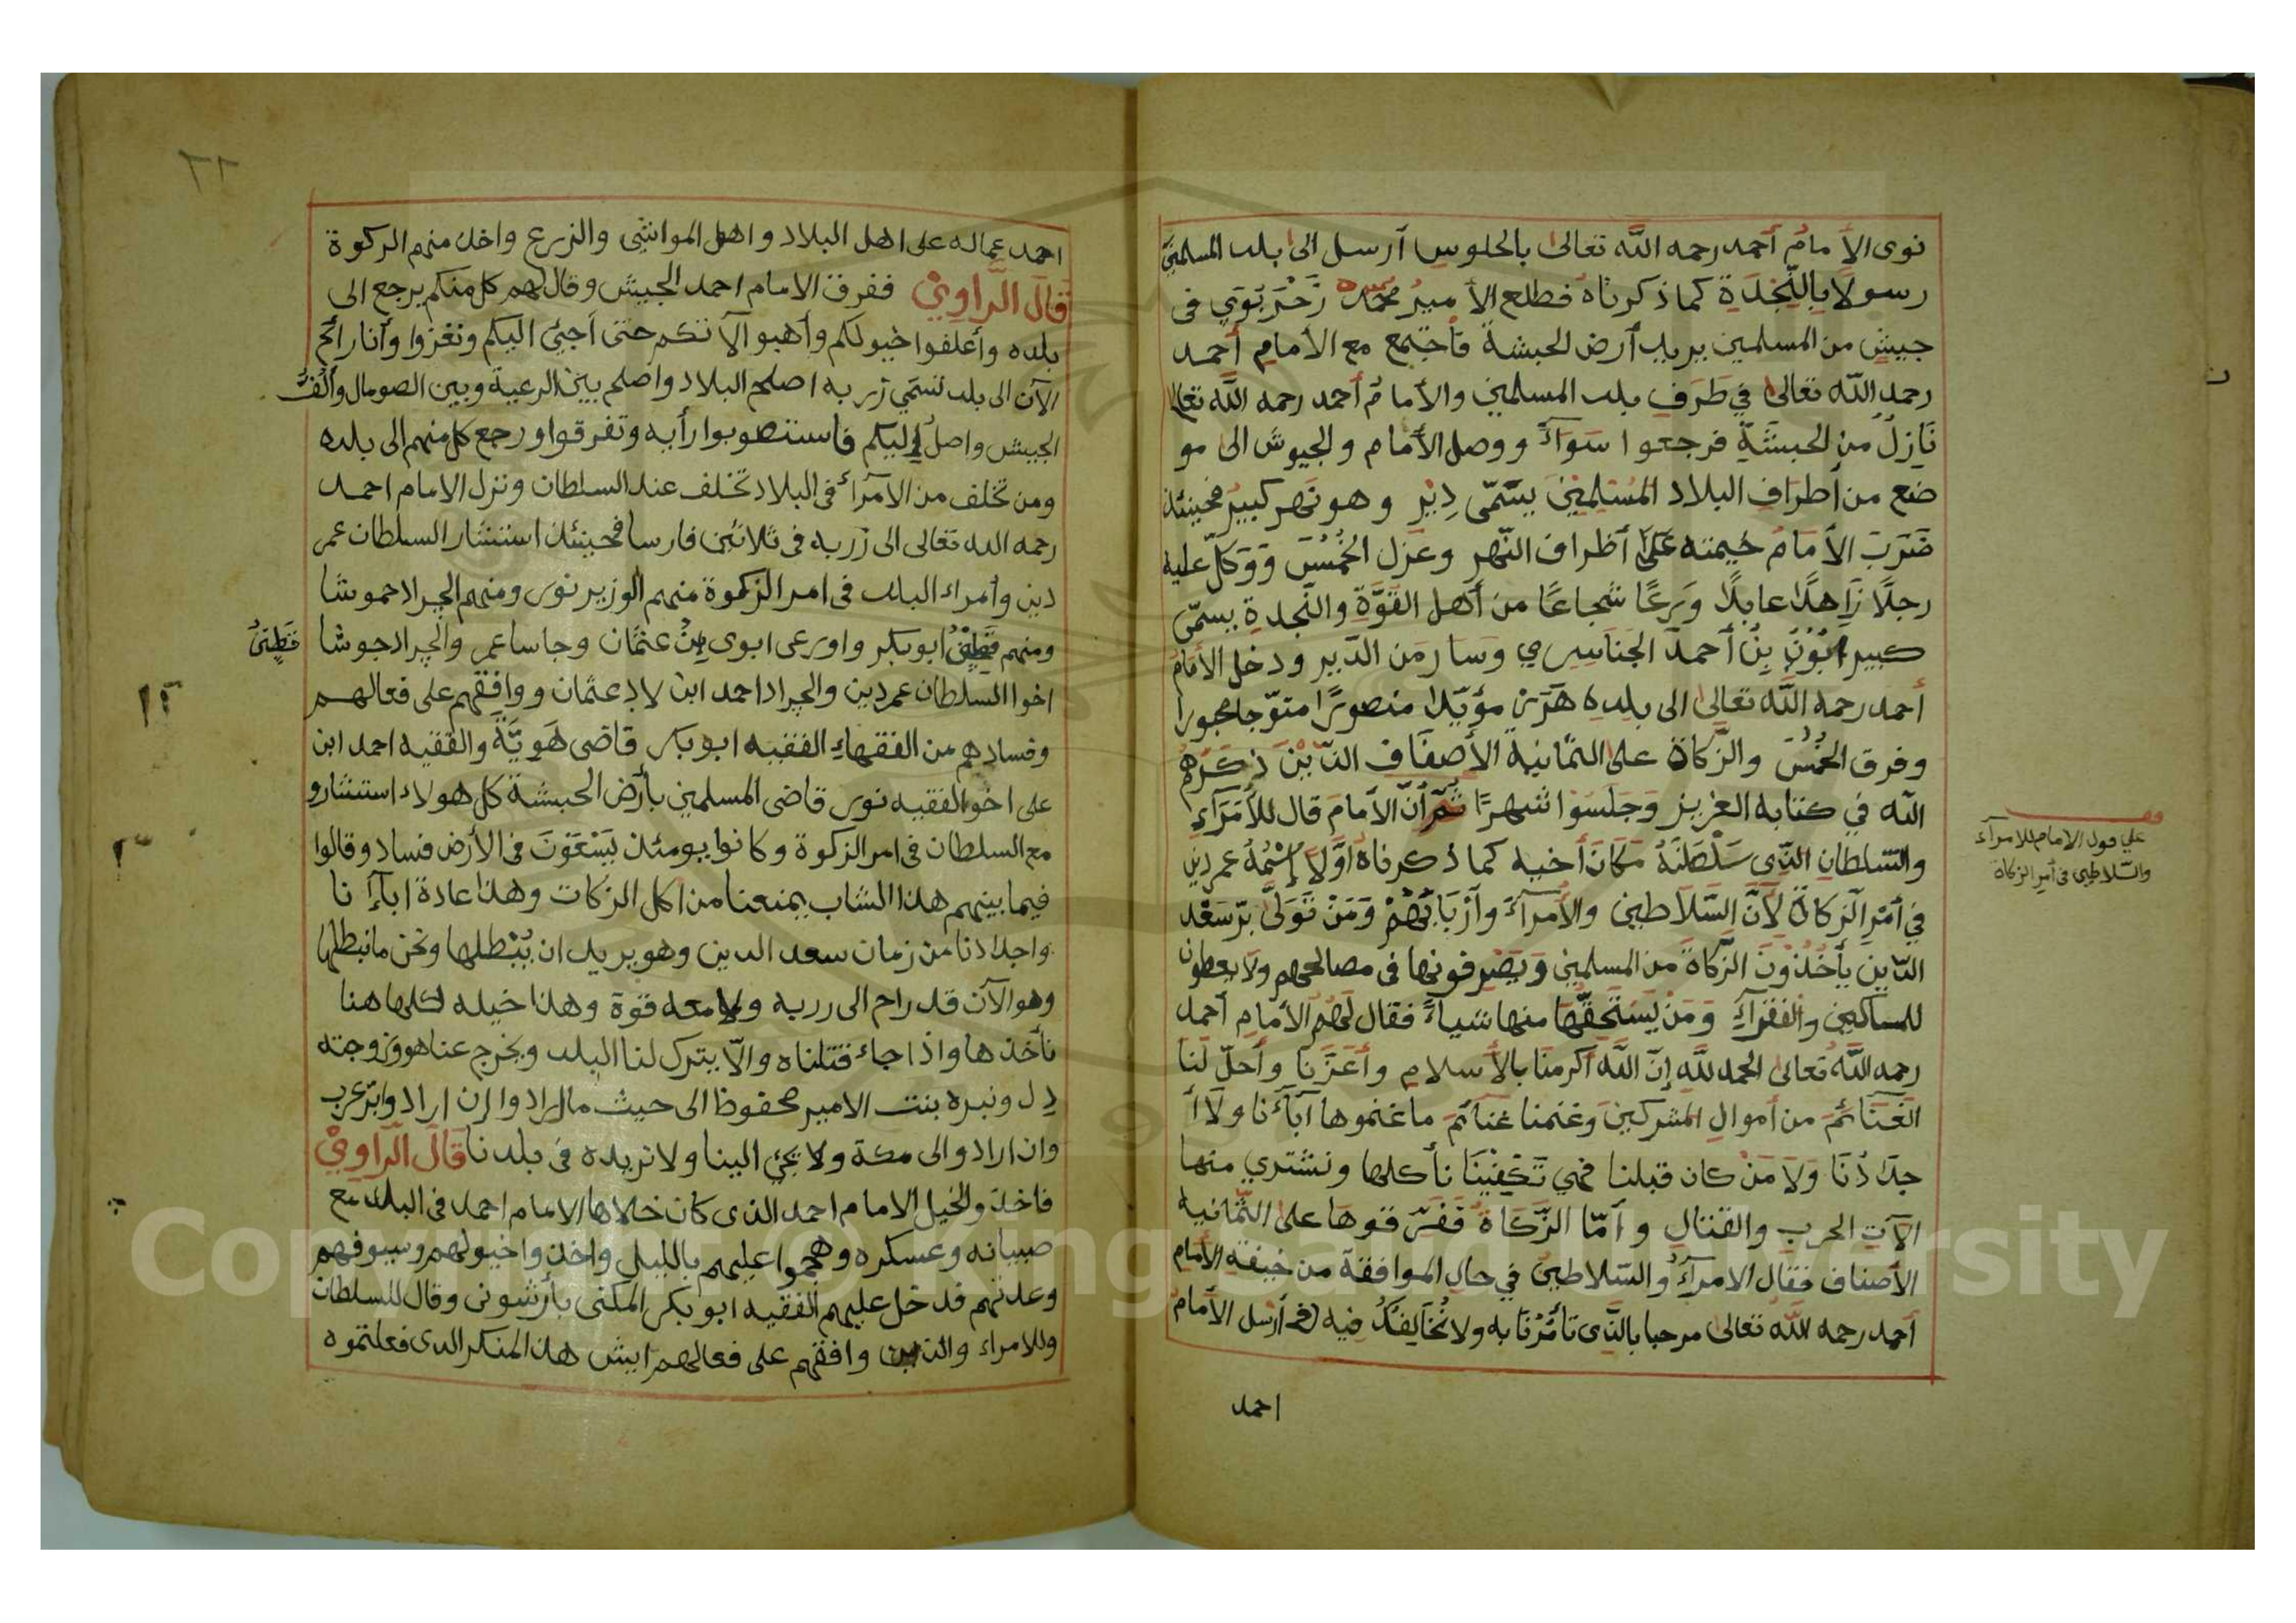 نوى الأمامُ أحمد رحمه الله تعالى بالجلوس أرسل الى بلد المسلمين
رسولا بالنّجْدَة كما ذكرناه فطلع الأميرُ محمّد زَحْرَبَوي في
جيشٍ من المسلمين يريد أرض الحبشة فأجتمع مع الأمام أحمد
رحمه الله تعالى في طَرَفِ بلد المسلمين والأمامُ أحمد رحمه الله تعالى
نَازِلٌ من الحبشَةِ فرجعوا سَوَآءً ووصل الأمام والجيوش الى مو
ضع من أطراف البلاد المُسْلِمِيْنَ يسَمّى دِيْر وهو نَهر كبيرٌ فحينئذ
ضَرَبَ الأمَامُ خيمته عَلَى أطراف النّهر وعزل الخُمُسَ وَوَكّل عليه
رجلًا زَاهدًا عابدًا وَرِعًا شجاعًا من أهل القَوَّةِ والنّجدة يسمّى
كبير أبُوْن بِنْ أحمدَ الجنَاسِري وَسَار من الدّير ودخل الأمَامُ
أحمد رحمه الله تعالى الى بلده هَرَرْ مؤيّدا منصورًا متوّجا محبورا
وفرق الخُمُسَ والزّكاة على الثمانية الأصنَاف الذّيْنَ ذكَرَهُم
الله في كتابه العزيز وَجَلَسُوْا شهرًا ثُمّ أنّ الأمَامَ قال للأُمَرَآءِ
والسّلطان الّذي سَلْطَنَهُ مَكانَ أخيه كما ذكرناه أوّلًا إسْمُهُ عمردين
في أمْرِ الزكاة لأنّ السّلاطين والأمرآءَ وأرْبَابَهُمْ وَمَنْ تَوَلّى برّ سَعْد
الدّين يأخُذُوْنَ الزّكاةَ من المسلمين وَيَصْرِفونها في مصالحهم ولا يعطون
للمساكين والفقرآءِ وَمَن يَسْتَحِقّهَا منها شيأً فقال لَهُم الأمام أحمد
رحمه الله تعالى الحمد لله إنّ الله أكرمنا بالأسلام وأعَزّنا وأحلّ لنا
الغنَائمَ من أموال المشركين وغنمنا غنائمَ ما غنموها آبَآءَنا ولا أ
جدَادُنَا ولا مَنْ كان قبلنا فهي تَكْفِيْنَا نأكلها ونشتري منها
الآت الحرب والقتال وأمّا الزَّكَاةُ فَفَرّقوهَا على الثّمانية
الأصناف فقال الامرآءُ والسّلاطينُ في حال الموافقة من خيفة الأمام
أحمد رحمه الله تعالى مرحبا بالّذي تأمُرُنَا به ولا نُخَالِفُكُ فيه أرسل الأمامُ
احمد
على قول الامام للامرآء
والسّلاطين في أمر الزكاة
٢٢
احمد عماله على اهل البلاد واهل المواشي والزرع واخذ منهم الزكوة
قَالَ الرّاوِيْ ففرق الامام احمد الجيش وقال لهم كل منكم يرجع الى
بلده وأعلفوا خيولكم وأهبوا الآتكم حتى أجئ اليكم ونغزوا وأنا رائح
الآن الى بلد تسمّي زربه اصلح البلاد واصلح بين الرعية وبين الصومال
الجيش واصل إليكم فاستصوبوا رأيه وتفرقوا ورجع كل منهم الى بلده
ومن تخلف من الأمرآء في البلاد تخلف عند السلطان ونزل الامام احمد
رحمه الله تعالى الى زربه في ثلاثين فارسا فحينئذ استشار السلطان عمر
دين وأمراء البلد في امر الزكوة منهم الوزير نور ومنهم الجراد حموشا
ومنهم ابوبكر واورعى ابوي بِنُ عثمان وجاسا عمر والجراد جوشا
قَطِيْنُ
اخوا السلطان عمردين والجراد احمد ابن لاد عثمان ووافقهم على فعالهم
وفسادهم من الفقهاء الفقيه ابوبكر قاضي هَوِيَّةَ والفقيه احمد ابن
على اخو الفقيه نور قاضي المسلمين بأرض الحبشة كل هولاء استشارو
مع السلطان في امر الزكوة وكانوا يومئذ يَسْعَوْنَ في الأرض فساد وقالوا
فيما بينهم هذا الشاب يمنعنا من أكل الزكات وهذا عادة ابآءنا
واجدادنا من زمان سعد الدين وهو يريد ان يُبْطلها ونحن ما نبطلها
وهو الآن قد راح الى زربه ولا معه قوة وهذا خيله كلها هنا
نأخذها واذا جاء قتلناه والّا يترك لنا البلد ويخرج عنا هو وزوجته
دل ونبره بنت الامير محفوظ الى حيث ما اراد والان اراد وابرّ عرب
وان ارادو الى مكة ولا يجئ الينا ولا نريده في بلدنا قَالَ الرّاوِيْ
فاخذو الخيل الامام احمد الذي كان خلاها الامام احمد في البلد مع
صبيانه وعسكره وهجموا عليهم بالليل واخذوا خيولهم وسيوفهم
وعدتهم فدخل عليهم الفقيه ابوبكر المكنى بأرشونى وقال للسلطان
وللامراء والذين وافقهم على فعالهم ايش هذا المنكر الذي فعلتموه
Copyright © King Saud University